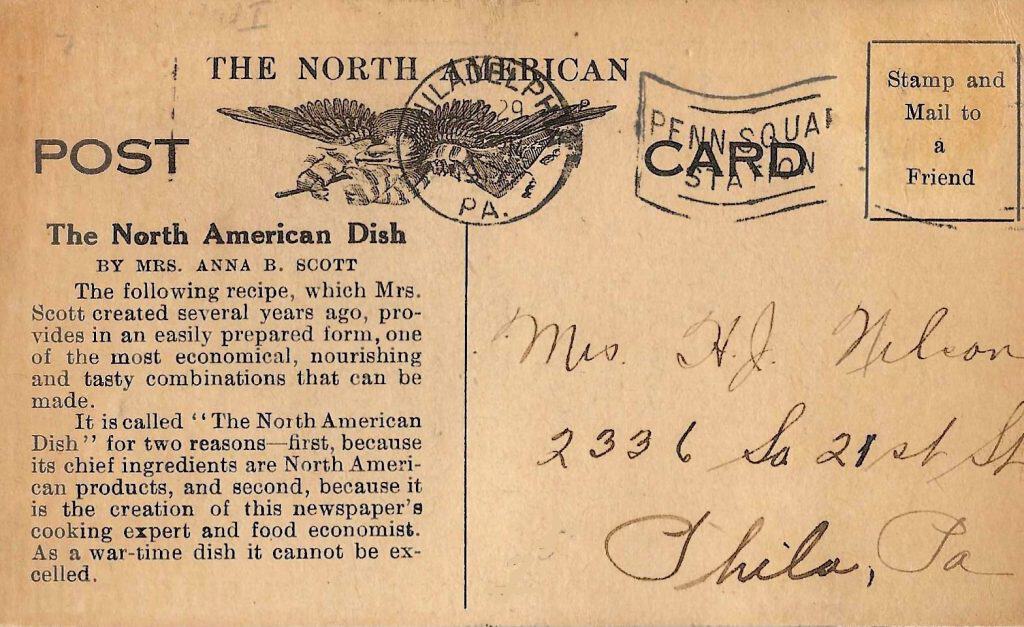 THE NORTH AMERICAN
PHILADELPHIA
29
PA.
PENN SQUA
STATION
POST CARD
Stamp and
Mail to
a
Friend
The North American Dish
BY MRS. ANNA B. SCOTT
The following recipe, which Mrs.
Scott created several years ago, pro-
vides in an easily prepared form, one
of the most economical, nourishing
and tasty combinations that can be
made.
It is called "The North American
Dish" for two reasons—first, because
its chief ingredients are North Ameri-
can products, and second, because it
is the creation of this newspaper's
cooking expert and food economist.
As a war-time dish it cannot be ex-
celled.
Mrs. H.J. Nelson
2336 So 21st St
Phila, Pa